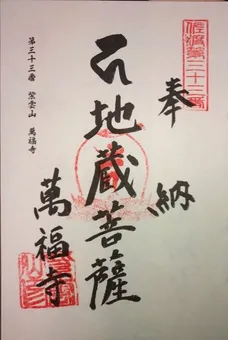 第三十三番
奉納
石地蔵菩薩
萬福寺
第三十三番 紫雲山 萬福寺